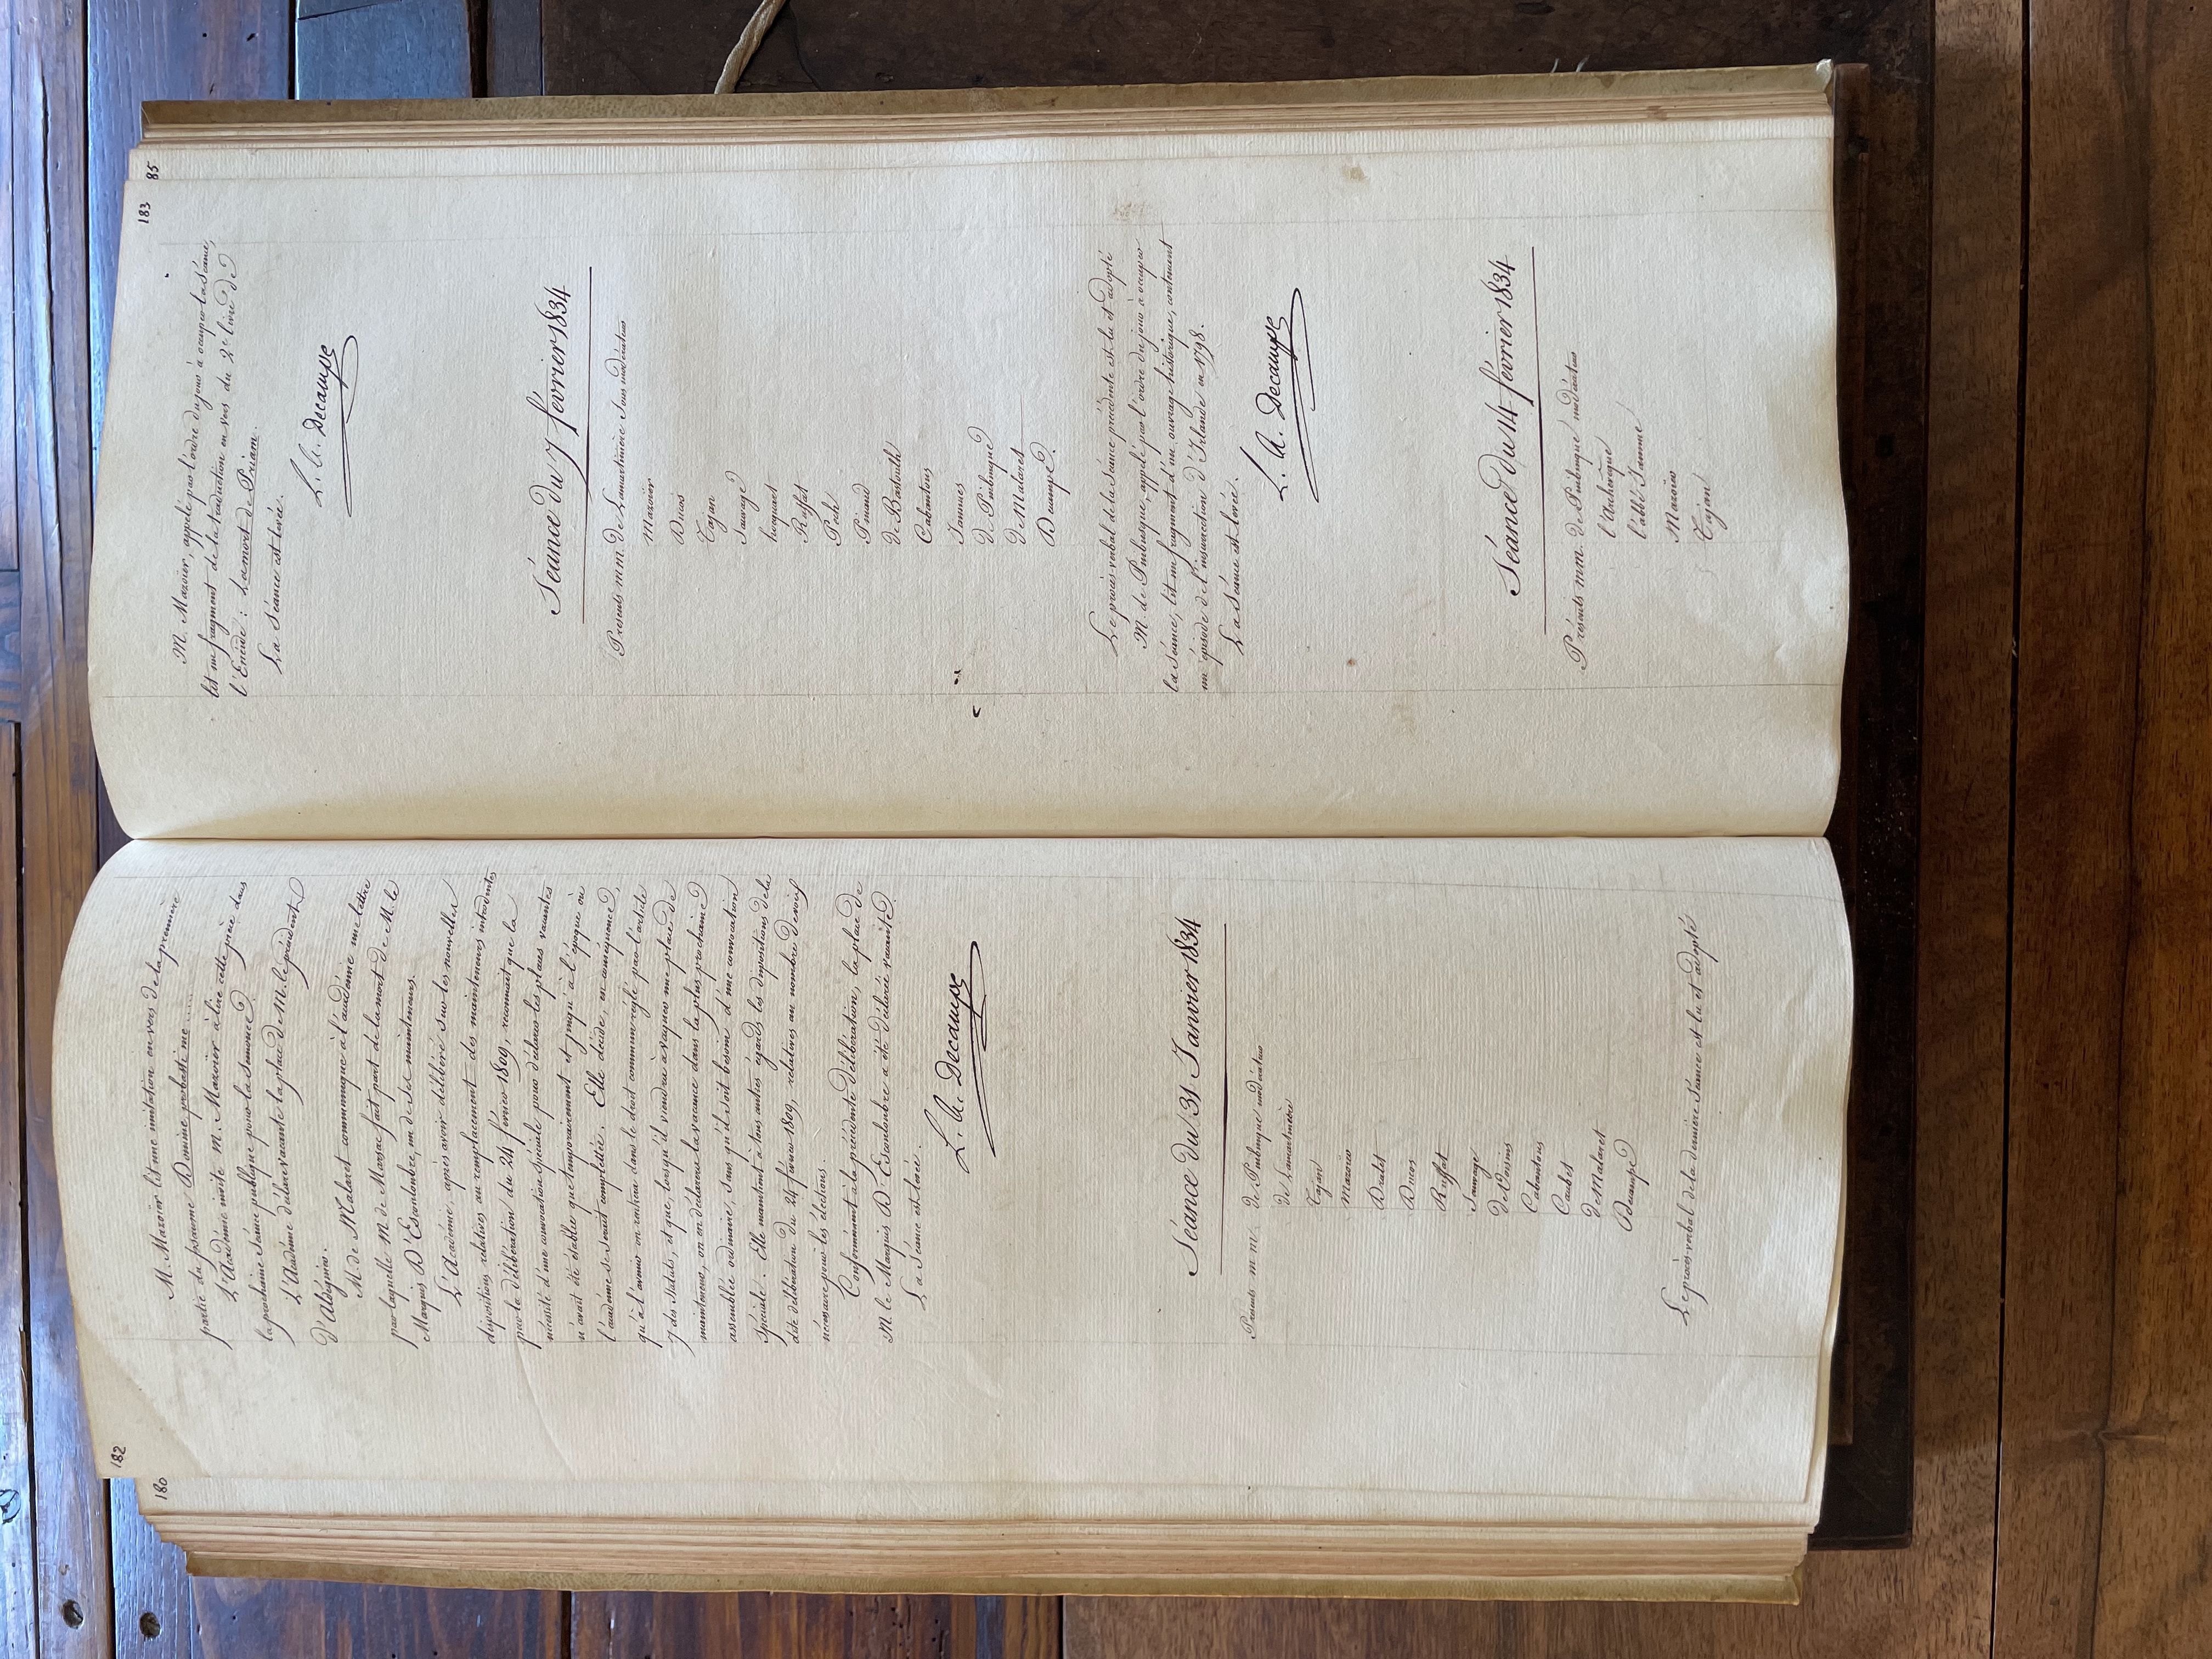 180
182
M. Mazoier lit une imitation en vers de la première
partie du psaume Domine probasti me .....
L'Académie invite M. Mazoier à lire cette pièce dans
la prochaine séance publique pour la semonce.
L'Académie déclare vacante la place de M. le président
D'Aldéguier.
M. de Malaret communique à l'académie une lettre
par laquelle M de Marsac fait part de la mort de M. le
Marquis D'Escouloubre, un de ses mainteneurs.
L'Académie, après avoir délibéré sur les nouvelles
dispositions relatives au remplacement des mainteneurs introduites
par la délibération du 24 février 1809, reconnait que la
nécessité d'une convocation spéciale pour déclarer les places vacantes
n'avait été établie que temporairement et jusqu'à l'époque où
l'académie se serait complettée. Elle décide, en conséquence,
qu'à l'avenir on rentrera dans le droit commun réglé par l'article
7 des statuts, et que, lorsqu'il viendra à vaquer une place de
mainteneur, on en déclarera la vacance dans la plus prochaine
assemblée ordinaire, sans qu'il soit besoin d'une convocation
spéciale. Elle maintient à tous autres égards les dispositions de la
dite délibération du 24 février 1809, relatives au nombre de voix
nécessaire pour les élections
Conformément à la précédente délibération, la place de
M. le Marquis D'Escouloubre a été déclarée vacante.
La Séance est levée.
L. A. Decampe
Séance du 31 Janvier 1834
Présents m m. de Pibusque modérateur
de Lamartinière
Tajan
Mazoier
Dralet
Ducos
Ruffat
Sauvage
de Voisins
Cabantous
Caubet
de Malaret
Decampe
Le procès-verbal de la dernière séance est lu et adopté
85
183
M. Mazoier, appelé par l'ordre du jour à occuper la séance,
lit un fragment de la traduction en vers du 2e livre de
l'Enéide : La mort de Priam.
La Séance est levée.
L. A. Decampe
Séance du 7 février 1834
Présents mm de Lamartinière sous modérateur
Mazoier
Ducos
Tajan
Sauvage
hocquart
Ruffat
Pech
Pinaud
de Bastoulh
Cabantous
Jammes
de Pibusque
de Malaret
Decampe.
Le procès verbal de la séance précédente est lu et adopté
M de Pibusque, appelé par l'ordre du jour à occuper
la séance, lit un fragment d'un ouvrage historique, contenant
un épisode de l'insurrection d'Irlande en 1798.
La Séance est levée.
L. A. Decampe
Séance du 14 février 1834
Présents mm. de Pibusque modérateur
l'Archevêque
l'abbé Jamme
Mazoier
Tajan